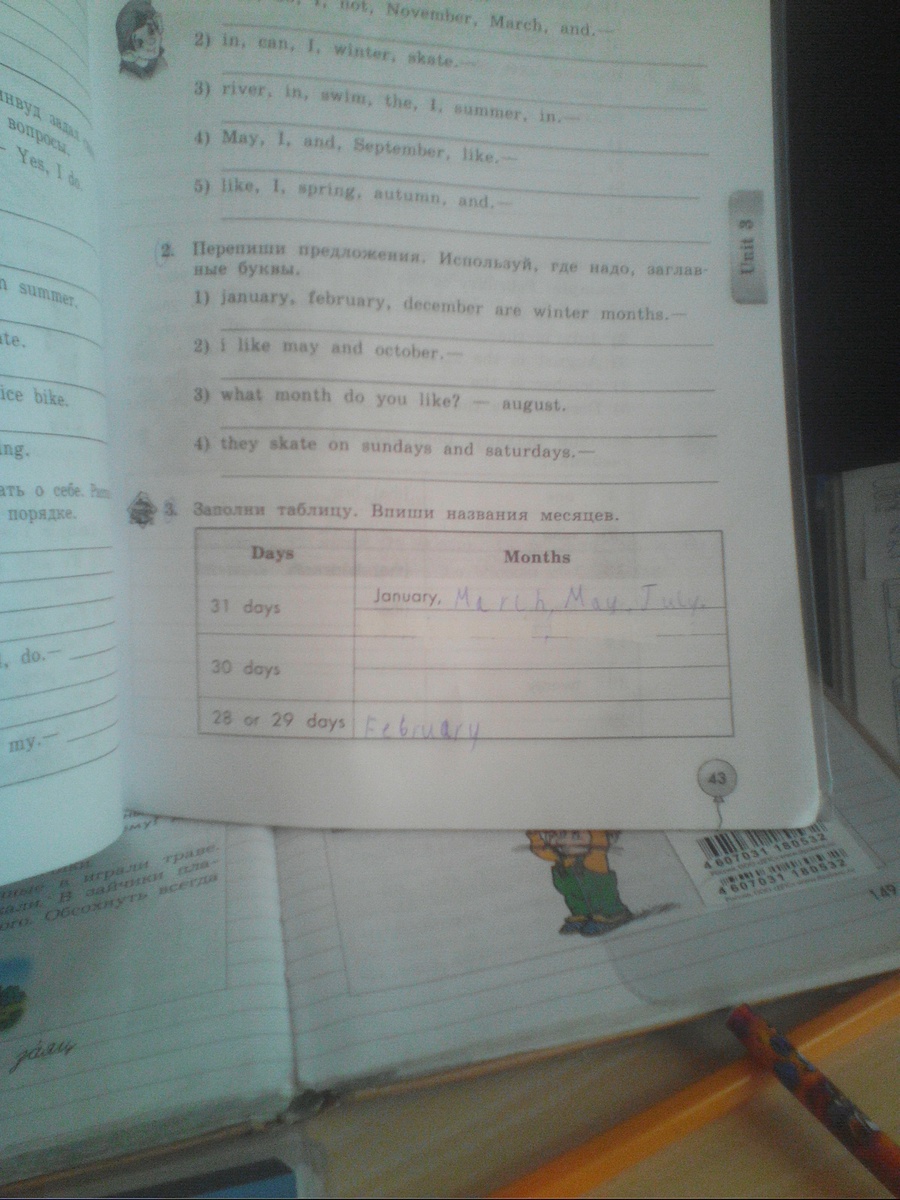 I, not, November, March, and.—
2) in, can, I, winter, skate.—
3) river, in, swim, the, I, summer, in.—
4) May, I, and, September, like.—
5) like, I, spring, autumn, and.—
вопросы.
— Yes, I do.
Unit 3
2. Перепиши предложения. Используй, где надо, заглав-
ные буквы.
1) january, february, december are winter months.—
2) i like may and october.—
3) what month do you like? — august.
4) they skate on sundays and saturdays.—
summer.
bike.
о себе.
порядке.
do.—
my.—
3. Заполни таблицу. Впиши названия месяцев.
Days Months
31 days January, March, May, July.
30 days
28 or 29 days February
43
4 607031 180532
4 607031 180532
149
в играли траве.
В зайчики
Обсохнуть всегда
заяц